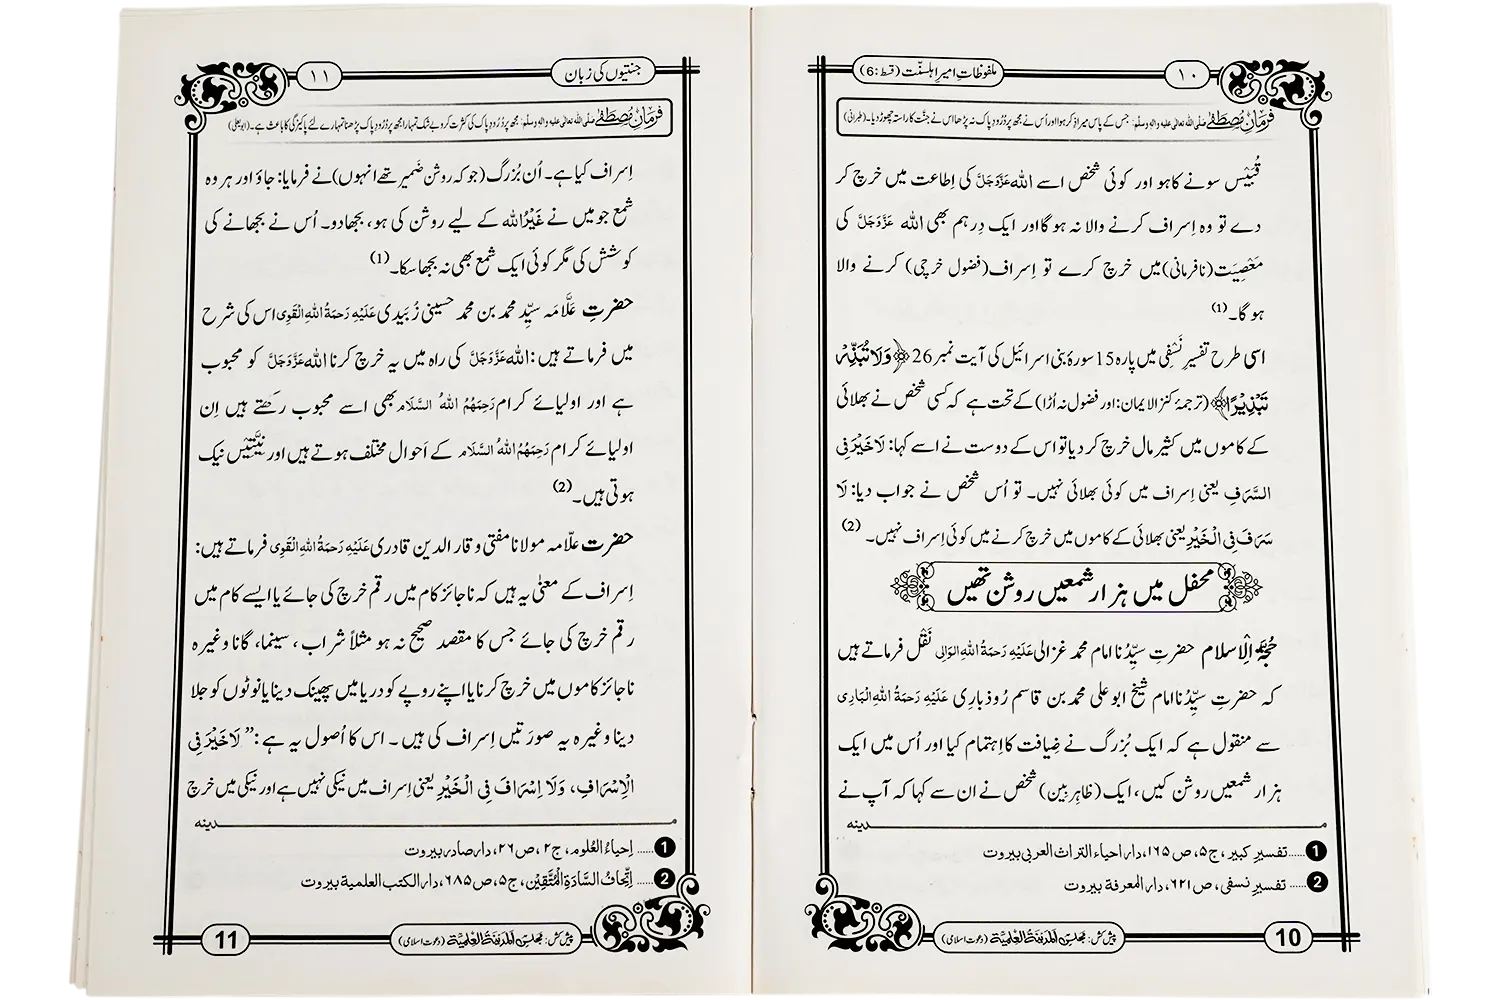 ملفوظاتِ امیرِ اہلسنّت (قسط:6)
۱۰
فرمانِ مصطفےٰ صلی اللہ تعالیٰ علیہ والہٖ وسلّم: جس کے پاس میرا ذکر ہوا اور اُس نے مجھ پر دُرُودِ پاک نہ پڑھا اس نے جنّت کا راستہ چھوڑ دیا۔ (طبرانی)
قُبَیْس سونے کا ہو اور کوئی شخص اسے اللہ عَزَّوَجَلَّ کی اِطاعت میں خرچ کر
دے تو وہ اِسراف کرنے والا نہ ہو گا اور ایک دِرہم بھی اللہ عَزَّوَجَلَّ کی
مَعْصِیَت (نافرمانی) میں خرچ کرے تو اِسراف (فضول خرچی) کرنے والا
ہو گا۔ (1)
اسی طرح تفسیرِ نَسَفِی میں پارہ 15 سورۂ بنی اسرائیل کی آیت نمبر 26 ﴿وَلَا تُبَذِّرْ
تَبْذِیْرًا﴾ (ترجمۂ کنزالایمان: اور فضول نہ اُڑا) کے تحت ہے کہ کسی شخص نے بھلائی
کے کاموں میں کثیر مال خرچ کر دیا تو اس کے دوست نے اسے کہا: لَا خَیْرَ فِی
السَّرَفِ یعنی اِسراف میں کوئی بھلائی نہیں۔ تو اُس شخص نے جواب دیا: لَا
سَرَفَ فِی الْخَیْرِ یعنی بھلائی کے کاموں میں خرچ کرنے میں کوئی اِسراف نہیں۔ (2)
محفل میں ہزار شمعیں روشن تھیں
حُجَّۃُ الْاِسلام حضرتِ سیِّدُنا امام محمد غزالی عَلَیْہِ رَحْمَۃُ اللہِ الْوَالِی نَقْل فرماتے ہیں
کہ حضرتِ سیِّدُنا امام شیخ ابو علی محمد بن قاسم رُوذباری عَلَیْہِ رَحْمَۃُ اللہِ الْبَارِی
سے منقول ہے کہ ایک بُزرگ نے ضِیافت کا اِہتمام کیا اور اُس میں ایک
ہزار شمعیں روشن کیں، ایک (ظاہِر بِین) شخص نے ان سے کہا کہ آپ نے
مدینہ
1 ..... تفسیرِ کبیر، ج۵، ص۱۶۵، دار احیاء التراث العربی بیروت
2 ..... تفسیرِ نسفی، ص۶۲۱، دار المعرفۃ بیروت
پیش کش: مجلس المدینۃ العلمیۃ (دعوتِ اسلامی)
10
جنتیوں کی زبان
۱۱
فرمانِ مصطفےٰ صلی اللہ تعالیٰ علیہ والہٖ وسلّم: مجھ پر دُرُودِ پاک کی کثرت کرو بے شک تمہارا مجھ پر دُرُودِ پاک پڑھنا تمہارے لئے پاکیزگی کا باعث ہے۔ (ابو یعلی)
اِسراف کیا ہے۔ اُن بُزرگ (جو کہ روشن ضمیر تھے انہوں) نے فرمایا: جاؤ اور ہر وہ
شمع جو میں نے غَیْرُ اللہ کے لیے روشن کی ہو، بجھا دو۔ اُس نے بجھانے کی
کوشش کی مگر کوئی ایک شمع بھی نہ بجھا سکا۔ (1)
حضرتِ علَّامہ سیِّد محمد بن محمد حسینی زُبیدی عَلَیْہِ رَحْمَۃُ اللہِ الْقَوِی اس کی شرح
میں فرماتے ہیں: اللہ عَزَّوَجَلَّ کی راہ میں یہ خرچ کرنا اللہ عَزَّوَجَلَّ کو محبوب
ہے اور اولیائے کرام رَحِمَہُمُ اللہُ السَّلَام بھی اسے محبوب رکھتے ہیں اِن
اولیائے کرام رَحِمَہُمُ اللہُ السَّلَام کے اَحوال مختلف ہوتے ہیں اور نیَّتیں نیک
ہوتی ہیں۔ (2)
حضرت علّامہ مولانا مفتی وقار الدین قادری عَلَیْہِ رَحْمَۃُ اللہِ الْقَوِی فرماتے ہیں:
اِسراف کے معنٰی یہ ہیں کہ ناجائز کام میں رقم خرچ کی جائے یا ایسے کام میں
رقم خرچ کی جائے جس کا مقصد صحیح نہ ہو مثلاً شراب، سینما، گانا وغیرہ
ناجائز کاموں میں خرچ کرنا یا اپنے روپے کو دریا میں پھینک دینا یا نوٹوں کو جلا
دینا وغیرہ یہ صورَتیں اِسراف کی ہیں۔ اس کا اُصول یہ ہے: ”لَا خَیْرَ فِی
الْاِسْرَافِ، وَلَا اِسْرَافَ فِی الْخَیْرِ یعنی اِسراف میں نیکی نہیں ہے اور نیکی میں خرچ
مدینہ
1 ..... اِحیاءُ العُلوم، ج۲، ص۲۶، دار صادر بیروت
2 ..... اِتحافُ السَّادَۃِ الْمُتَّقِیْن، ج۵، ص۶۸۵، دار الکتب العلمیۃ بیروت
پیش کش: مجلس المدینۃ العلمیۃ (دعوتِ اسلامی)
11